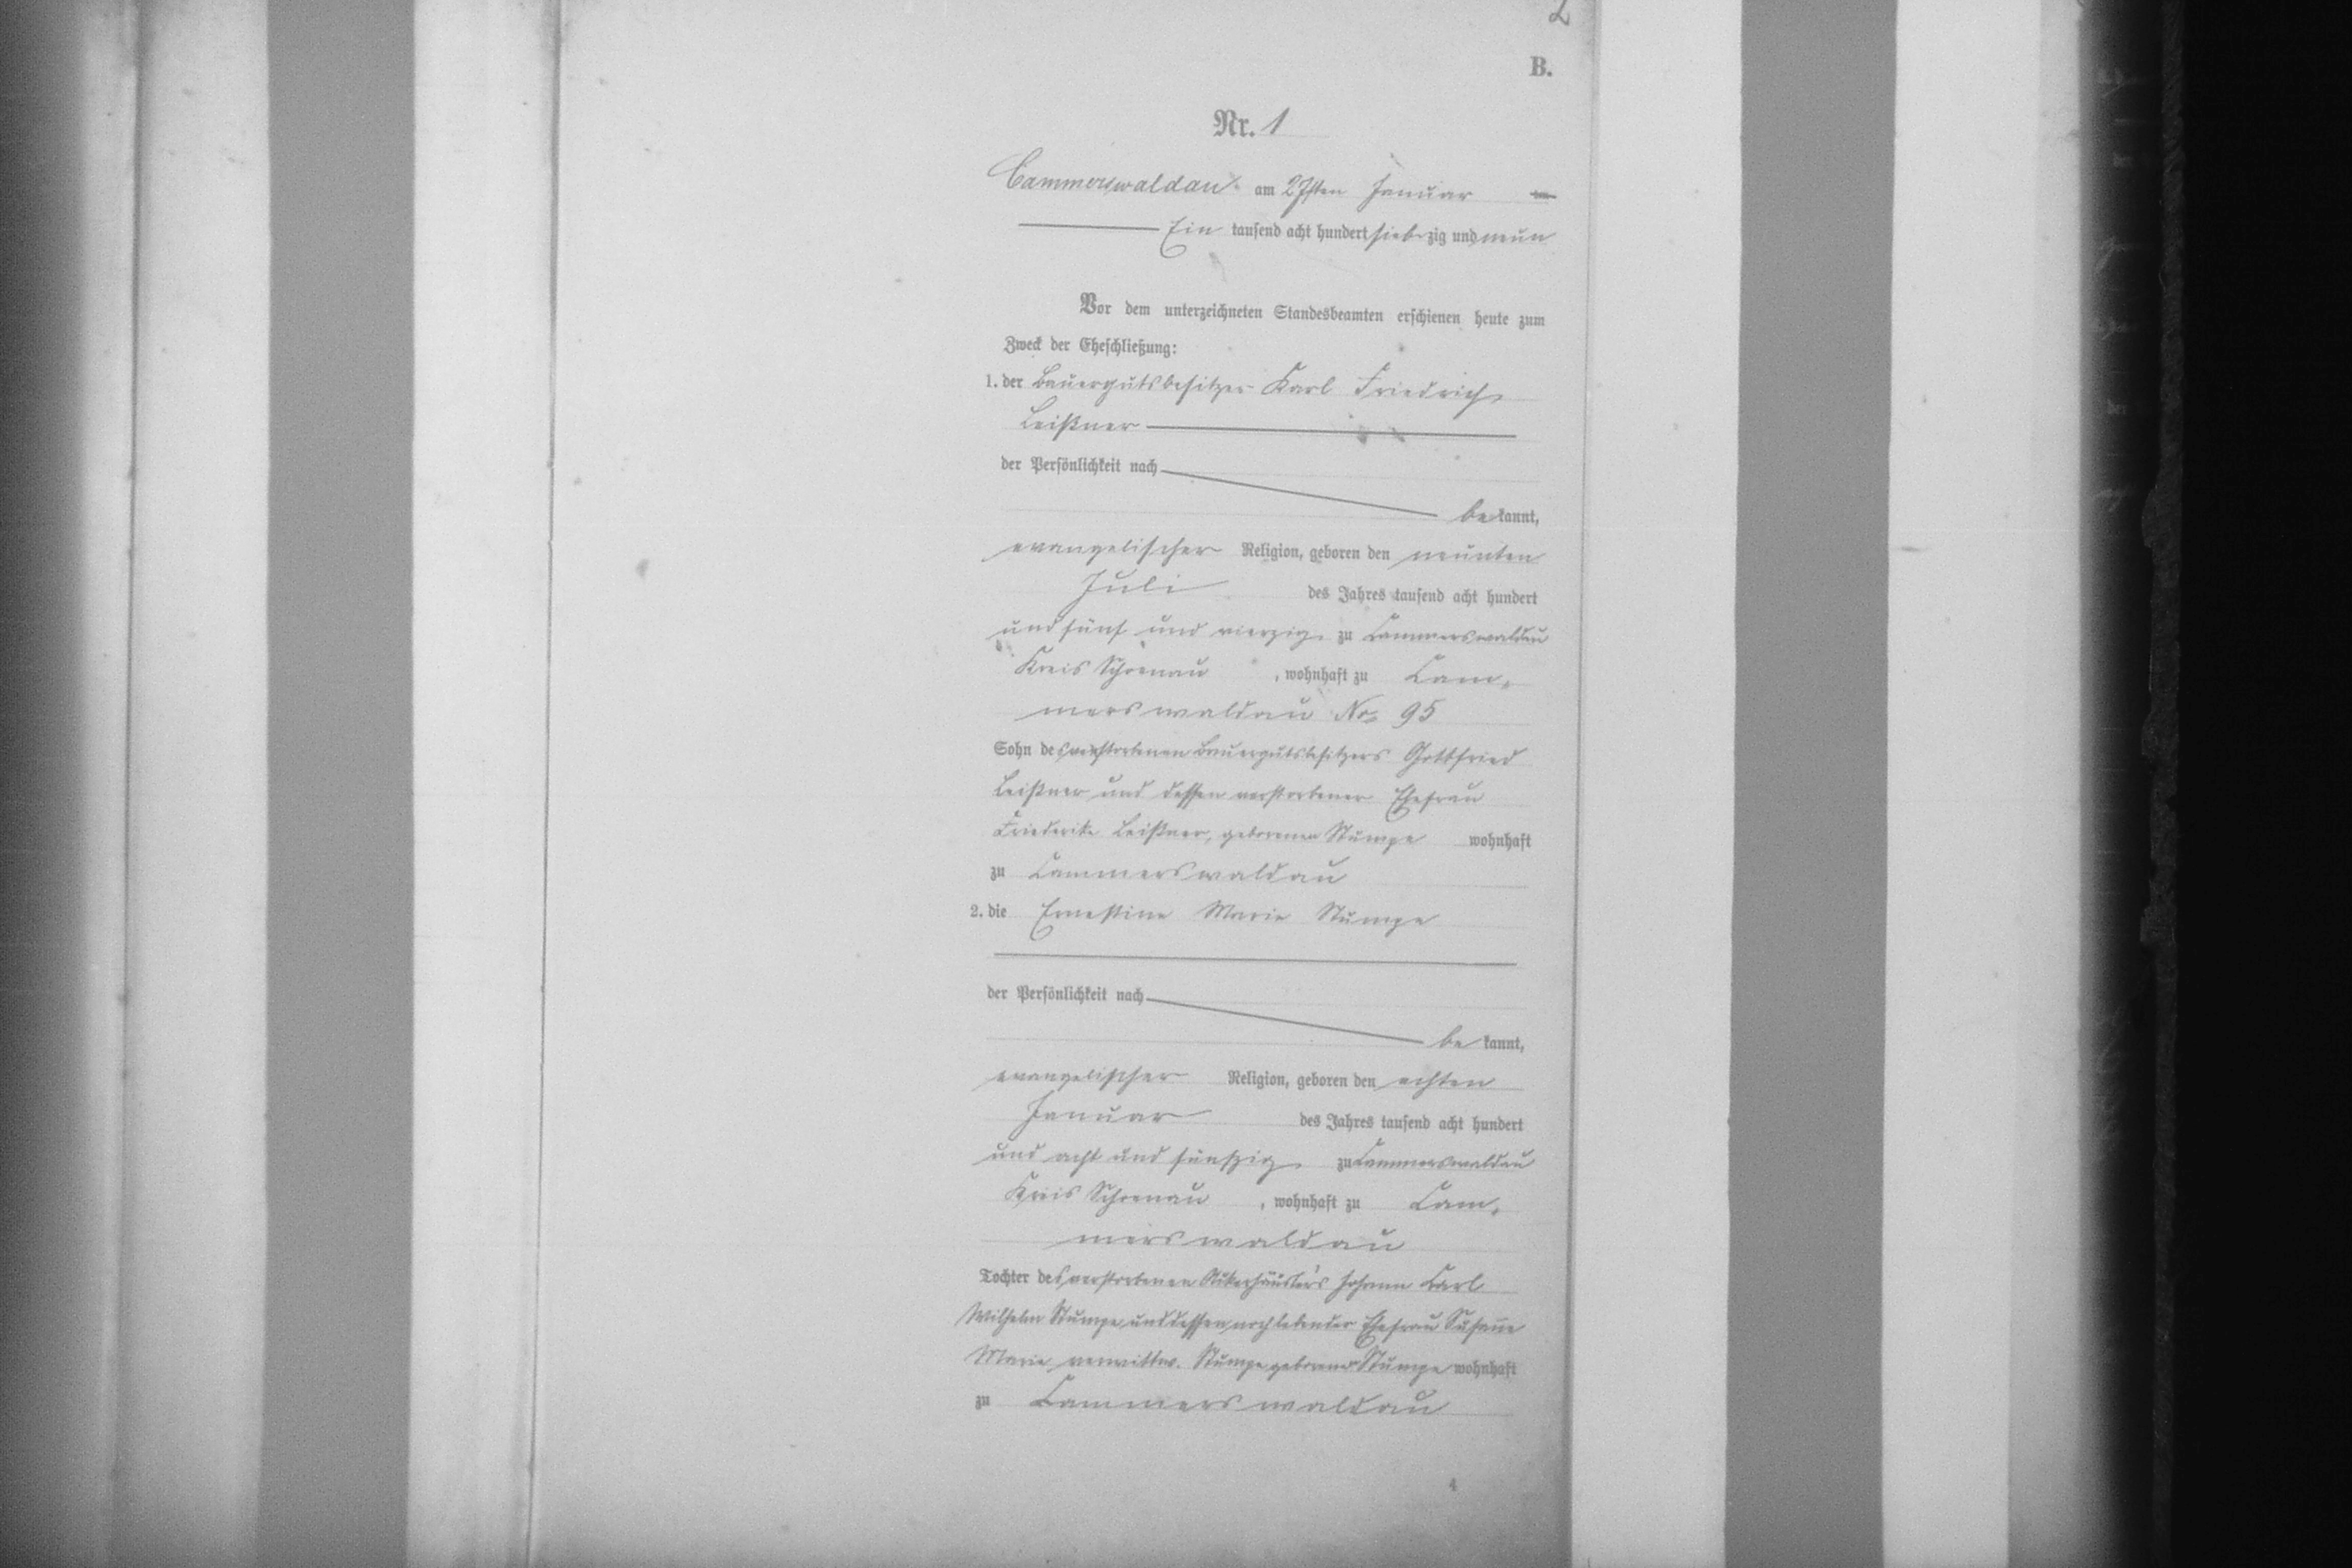 2
B.
Nr. 1
Cammerswaldau am 27sten Januar
Ein tausend acht hundert siebzig und neun
Vor dem unterzeichneten Standesbeamten erschienen heute zum
Zweck der Eheschließung:
1. der Bauergutsbesitzer Karl Friedrich
Leißner
der Persönlichkeit nach
be kannt,
evangelischer Religion, geboren den neunten
Juli des Jahres tausend acht hundert
und fünf und vierzig zu Cammerswaldau
Kreis Schoenau, wohnhaft zu Cam-
merswaldau No. 95
Sohn des verstorbenen Bauergutsbesitzers Gottfried
Leißner und dessen verstorbener Ehefrau
Friederike Leißner, geborenen Stumpe wohnhaft
zu Cammerswaldau
2. die Ernestine Marie Stumpe
der Persönlichkeit nach
be kannt,
evangelischer Religion, geboren den achten
Januar des Jahres tausend acht hundert
und acht und fünfzig zu Cammerswaldau
Kreis Schoenau, wohnhaft zu Cam-
merswaldau
Tochter des verstorbenen Ackerhäuslers Johann Carl
Wilhelm Stumpe und dessen noch lebender Ehefrau Susanne
Marie verwittw. Stumpe geborener Stumpe wohnhaft
zu Cammerswaldau
4